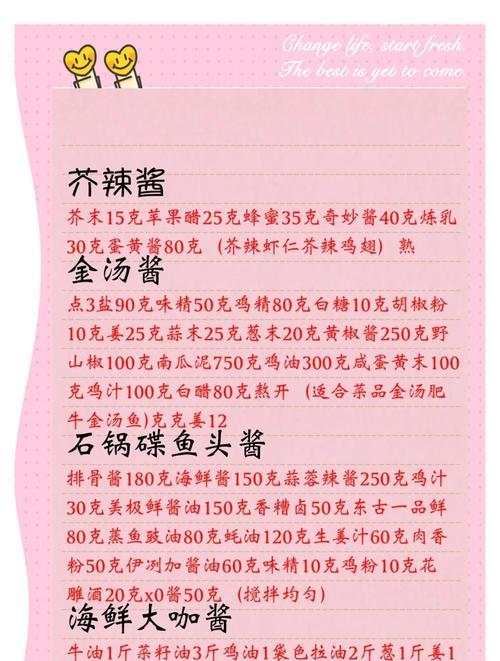 Change life, start fresh.
The best is yet to come.
芥辣酱
芥末15克苹果醋25克蜂蜜35克奇妙酱40克炼乳
30克蛋黄酱80克 (芥辣虾仁芥辣鸡翅) 熟
金汤酱
点3盐90克味精50克鸡精80克白糖10克胡椒粉
10克姜25克蒜末25克葱末20克黄椒酱250克野
山椒100克南瓜泥750克鸡油300克咸蛋黄末100
克鸡汁100克白醋80克熬开 (适合菜品金汤肥
牛金汤鱼)克克姜12
石锅碟鱼头酱
排骨酱180克海鲜酱150克蒜蓉辣酱250克鸡汁
30克美极鲜酱油150克香糟卤50克东古一品鲜
80克蒸鱼豉油80克蚝油120克生姜汁60克肉香
粉50克伊冽加酱油60克味精10克鸡粉10克花
雕酒20克x0酱50克 (搅拌均匀)
海鲜大咖酱
牛油1斤菜籽油3斤鸡油1袋色拉油2斤葱1斤姜1